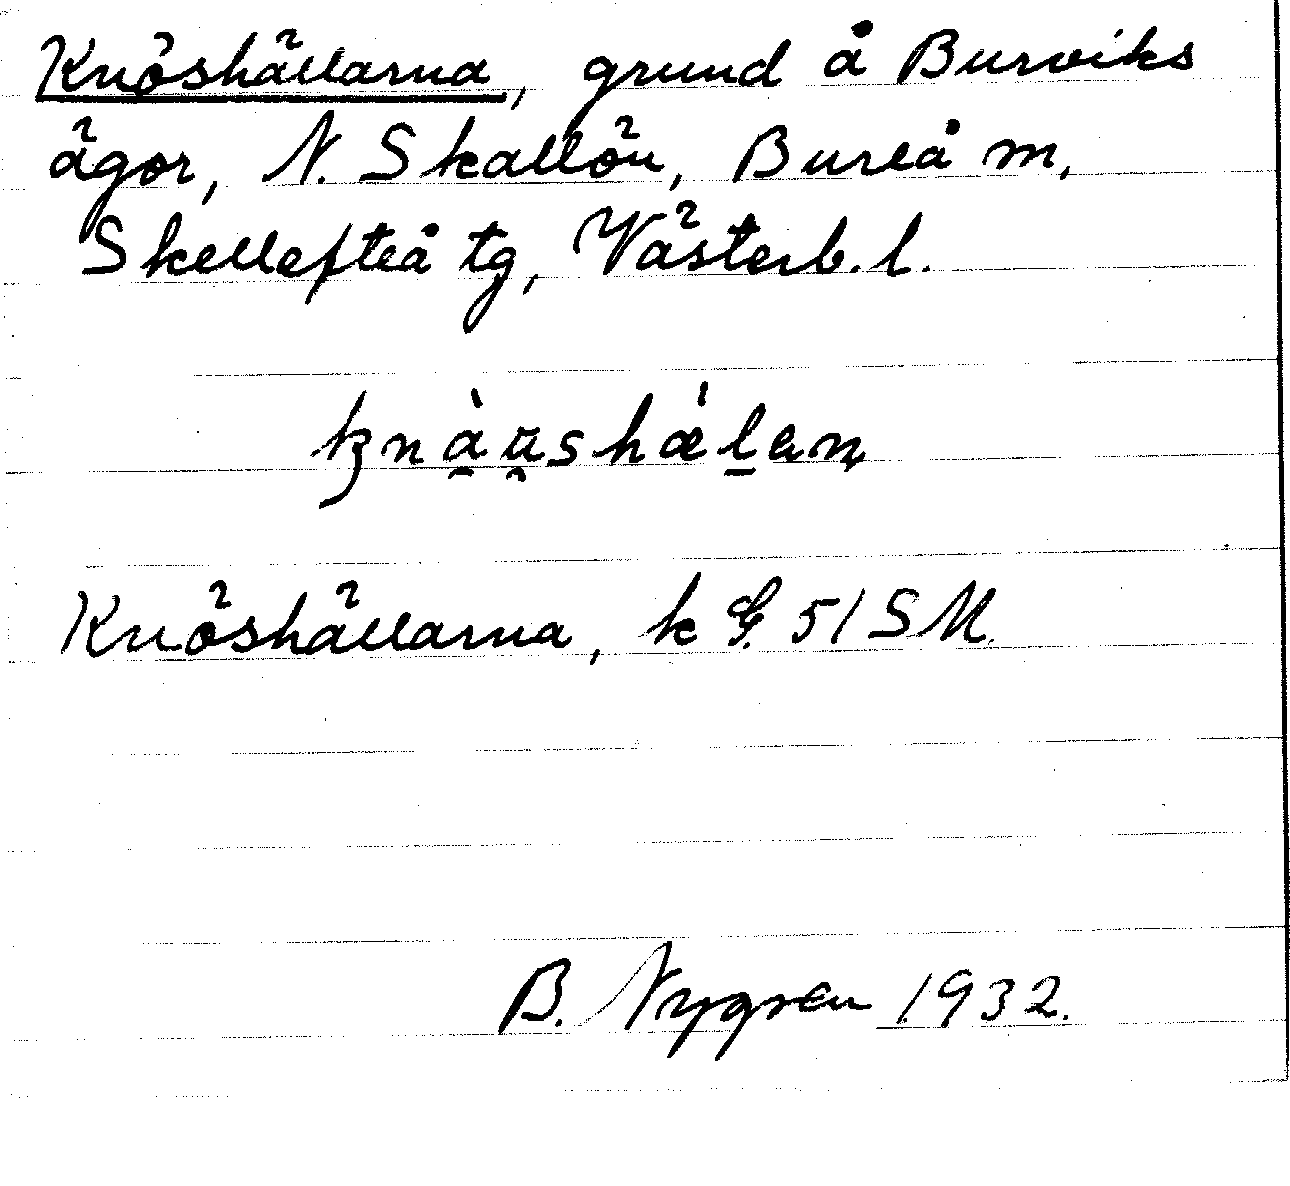 Knöshällarna, grund å Burviks
ägor, N. Skallön, Bureå m,
Skellefteå tg, Västerb. l.
Knöshällarna, k G. 51 SM.
B. Nygren 1932.